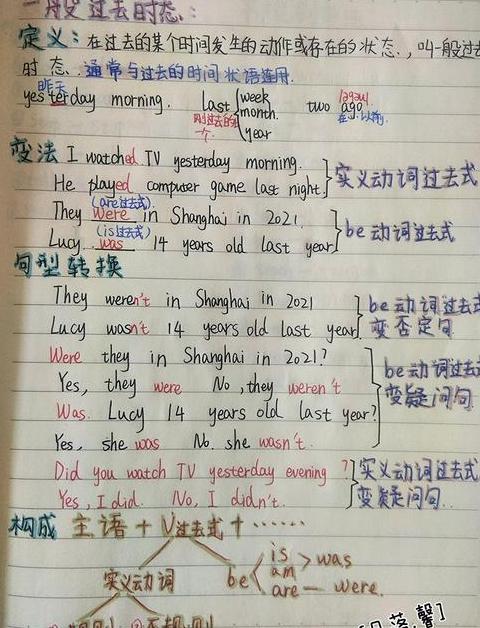 一般过去时态:
定义:在过去的某个时间发生的动作或存在的状态.,叫一般过去
时态.通常与过去的时间状语连用.
昨天
yesterday morning. last week two ago
month.
year
变法 I watched TV yesterday morning.
He played computer game last night. 实义动词过去式
(are过去式)
They were in Shanghai in 2021. be动词过去式
(is过去式)
Lucy was 14 years old last year
句型转换
They weren't in Shanghai in 2021 be动词过去式
Lucy wasn't 14 years old last year. 变否定句
Were they in Shanghai in 2021? be动词过去
Yes, they were No, they weren't 变疑问句.
Was. Lucy 14 years old last year?
Yes, she was No. she wasn't.
Did you watch TV yesterday evening ? 实义动词过去式
Yes, I did. No, I didn't. 变疑问句.
构成 主语+V过去式+······
实义动词 be is am > was
are — were.